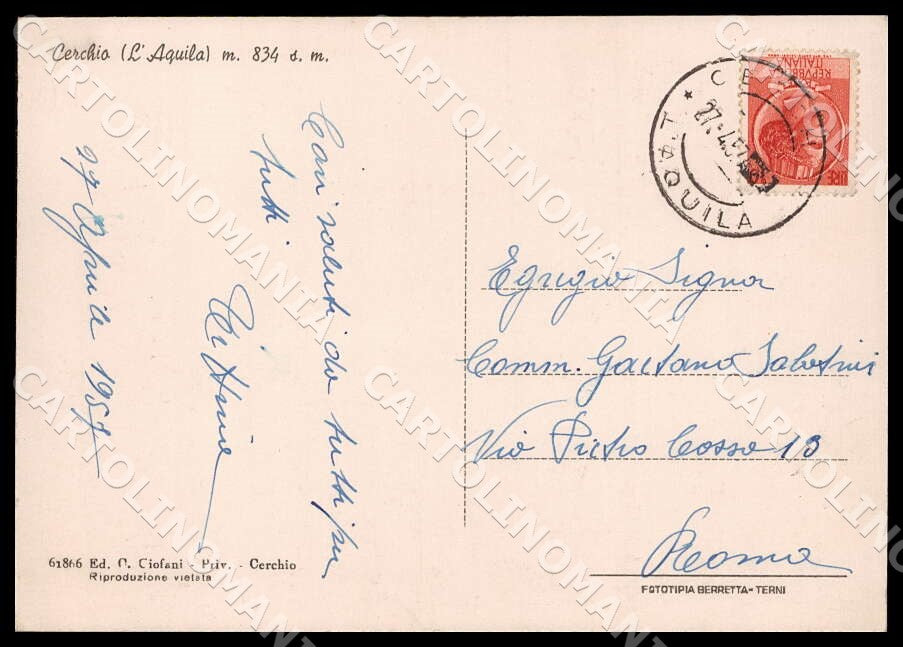 Cerchio (L'Aquila) m. 834 s. m.
Cari saluti da tutti per
tutti
27 Aprile 1957
61866 Ed. C. Ciofani - Priv. - Cerchio
Riproduzione vietata
REPVBBLICA
ITALIANA
LIRE
L'AQUILA
Egregio Signor
Comm. Gaetano Sabatini
Via Pietro Cossa 13
Roma
FOTOTIPIA BERRETTA - TERNI
CARTOLINOMANIA